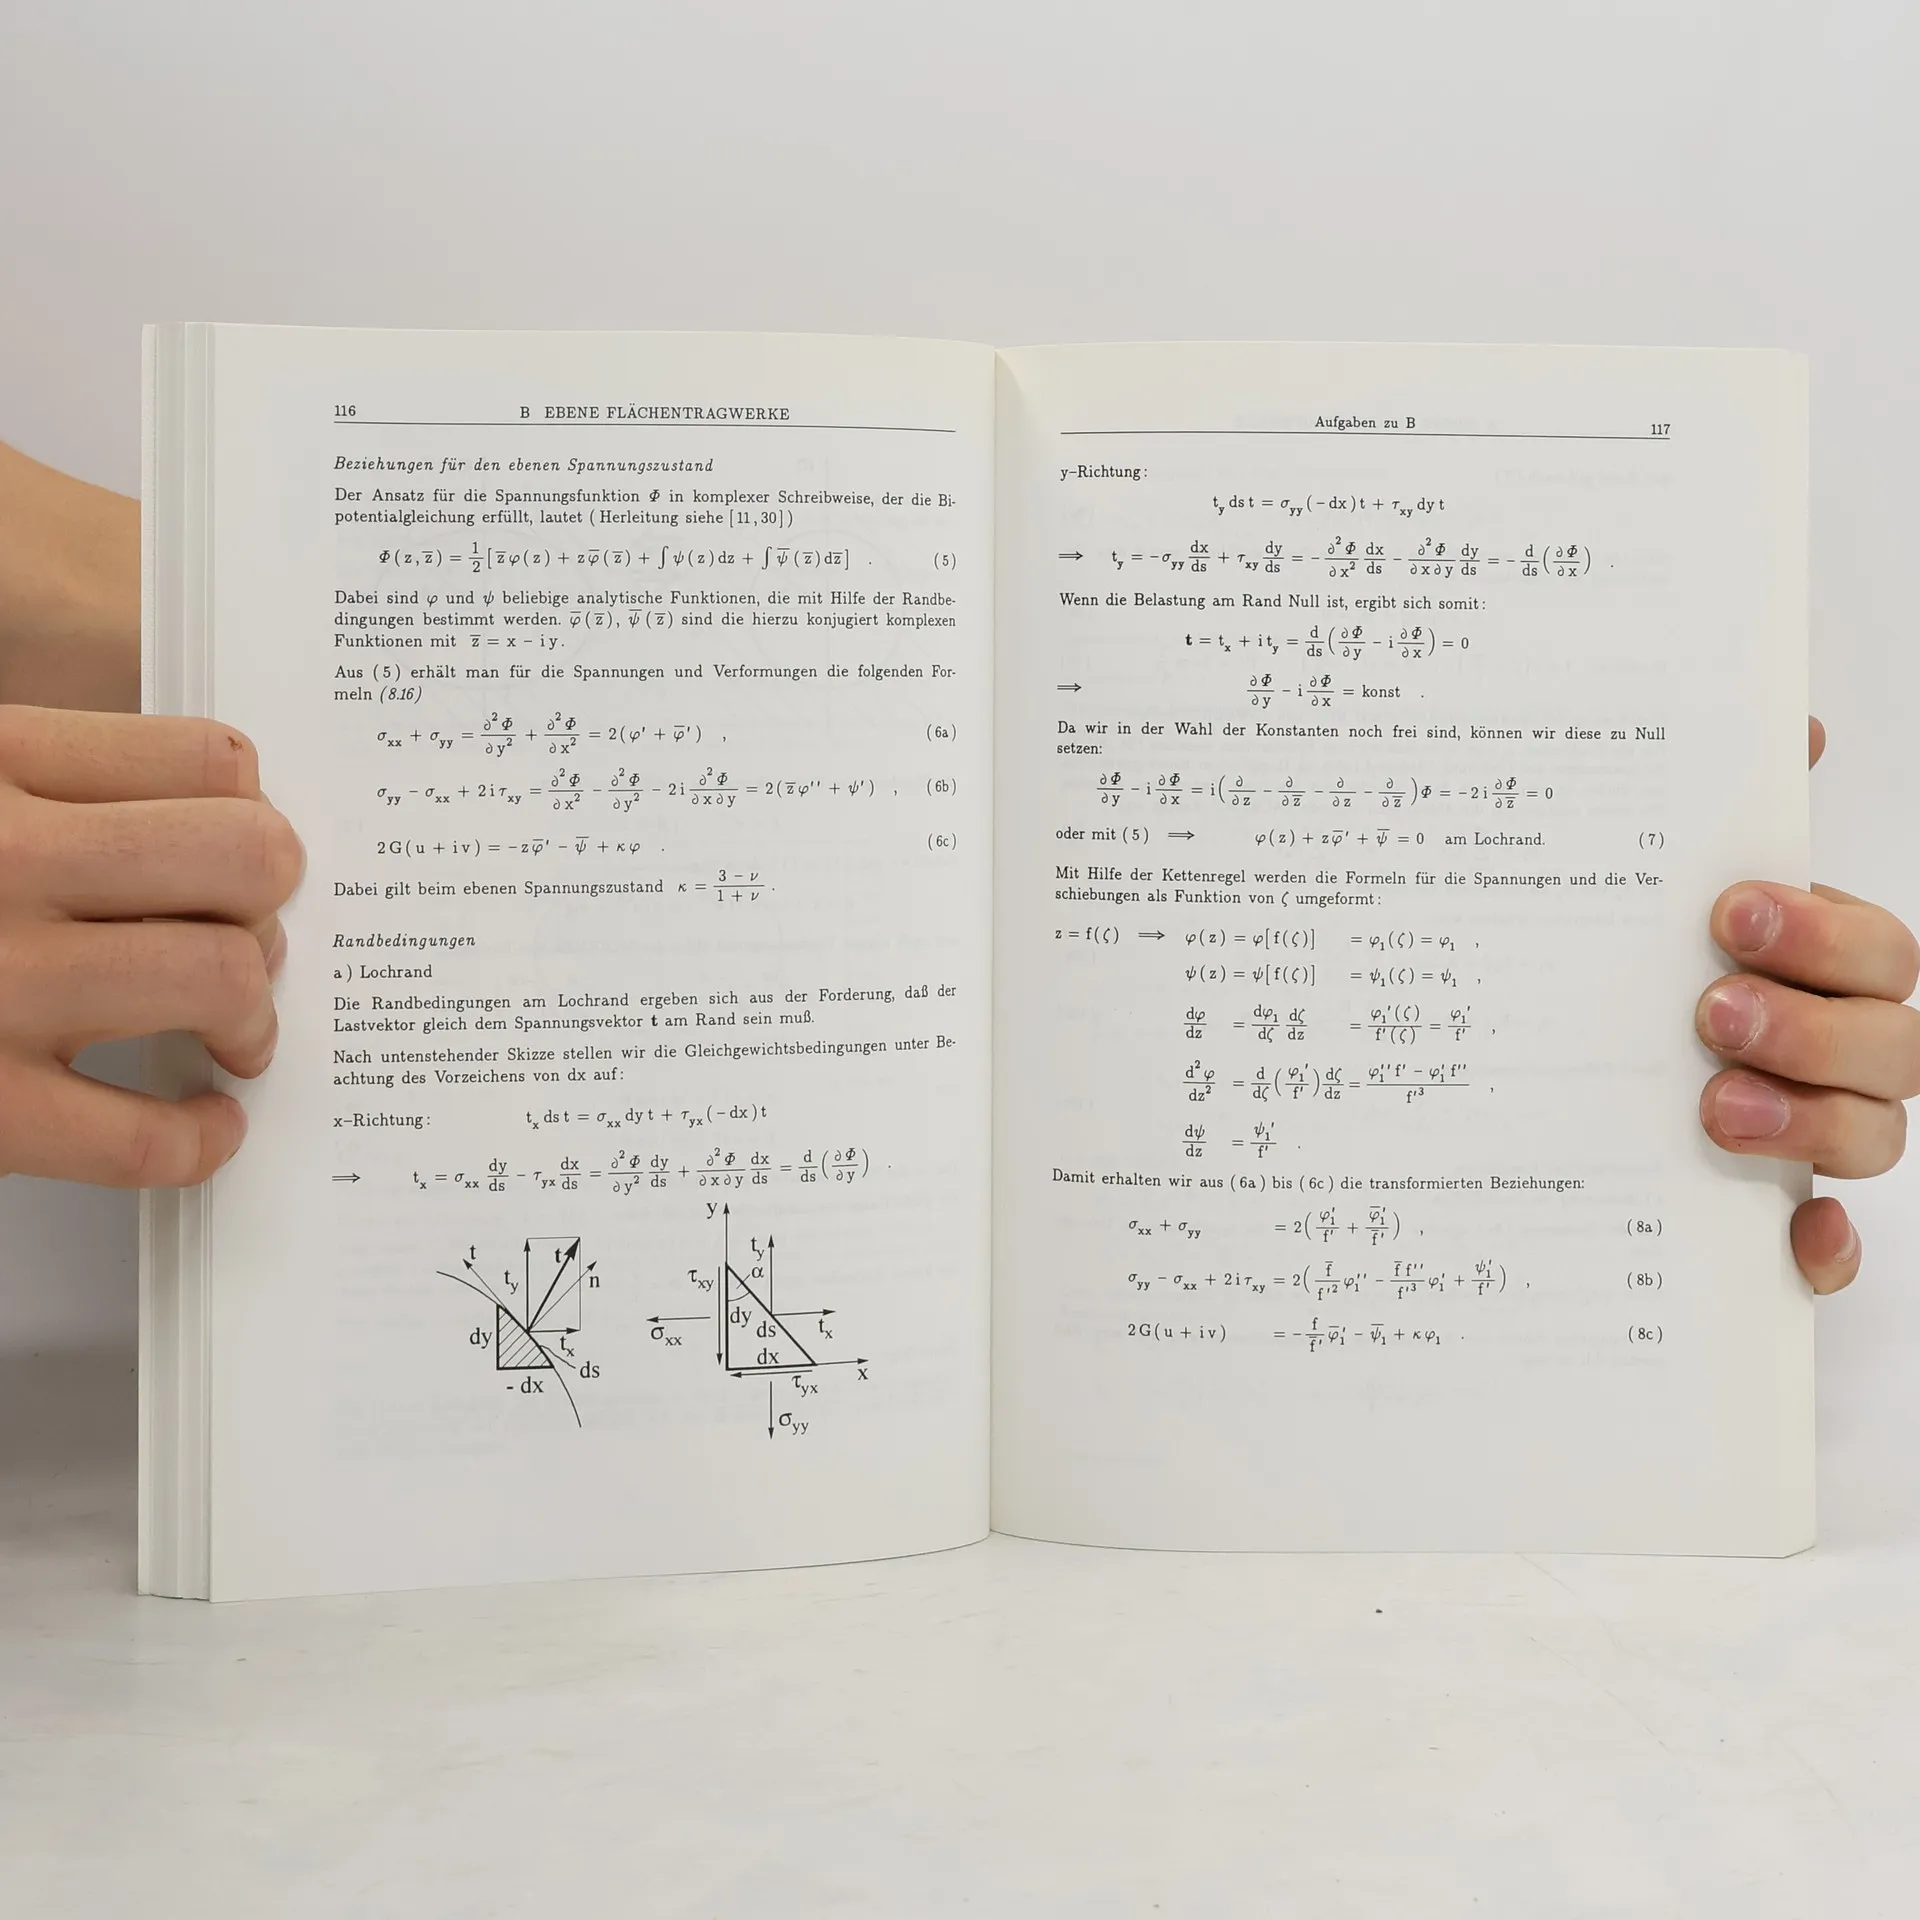 116 B EBENE FLÄCHENTRAGWERKE
Beziehungen für den ebenen Spannungszustand
Der Ansatz für die Spannungsfunktion Φ in komplexer Schreibweise, der die Bi-
potentialgleichung erfüllt, lautet ( Herleitung siehe [ 11 , 30 ] )
Φ ( z , z̅ ) = 1/2 [ z̅ φ ( z ) + z φ̅ ( z̅ ) + ∫ ψ ( z ) dz + ∫ ψ̅ ( z̅ ) dz̅ ] . (5)
Dabei sind φ und ψ beliebige analytische Funktionen, die mit Hilfe der Randbe-
dingungen bestimmt werden. φ̅ ( z̅ ) , ψ̅ ( z̅ ) sind die hierzu konjugiert komplexen
Funktionen mit z̅ = x − i y .
Aus ( 5 ) erhält man für die Spannungen und Verformungen die folgenden For-
meln (8.16)
σxx + σyy = ∂²Φ/∂y² + ∂²Φ/∂x² = 2 ( φ' + φ̅' ) , (6a)
σyy − σxx + 2 i τxy = ∂²Φ/∂x² − ∂²Φ/∂y² − 2 i ∂²Φ/∂x∂y = 2 ( z̅ φ'' + ψ' ) , (6b)
2 G ( u + i v ) = − z φ̅' − ψ̅ + κ φ . (6c)
Dabei gilt beim ebenen Spannungszustand κ = (3 − ν)/(1 + ν) .
Randbedingungen
a ) Lochrand
Die Randbedingungen am Lochrand ergeben sich aus der Forderung, daß der
Lastvektor gleich dem Spannungsvektor t am Rand sein muß.
Nach untenstehender Skizze stellen wir die Gleichgewichtsbedingungen unter Be-
achtung des Vorzeichens von dx auf :
x–Richtung : tx ds t = σxx dy t + τyx ( − dx ) t
⟹ tx = σxx dy/ds − τyx dx/ds = ∂²Φ/∂y² dy/ds + ∂²Φ/∂x∂y dx/ds = d/ds ( ∂Φ/∂y ) .
t ty t n dy tx ds - dx
y ty τxy α dy ds tx σxx dx x τyx σyy
Aufgaben zu B 117
y–Richtung :
ty ds t = σyy ( − dx ) t + τxy dy t
⟹ ty = − σyy dx/ds + τxy dy/ds = − ∂²Φ/∂x² dx/ds − ∂²Φ/∂x∂y dy/ds = − d/ds ( ∂Φ/∂x ) .
Wenn die Belastung am Rand Null ist, ergibt sich somit :
t = tx + i ty = d/ds ( ∂Φ/∂y − i ∂Φ/∂x ) = 0
⟹ ∂Φ/∂y − i ∂Φ/∂x = konst .
Da wir in der Wahl der Konstanten noch frei sind, können wir diese zu Null
setzen:
∂Φ/∂y − i ∂Φ/∂x = i ( ∂/∂z − ∂/∂z̅ − ∂/∂z − ∂/∂z̅ ) Φ = − 2 i ∂Φ/∂z̅ = 0
oder mit ( 5 ) ⟹ φ ( z ) + z φ̅' + ψ̅ = 0 am Lochrand. ( 7 )
Mit Hilfe der Kettenregel werden die Formeln für die Spannungen und die Ver-
schiebungen als Funktion von ζ umgeformt :
z = f(ζ) ⟹ φ ( z ) = φ [ f(ζ) ] = φ₁(ζ) = φ₁ ,
ψ ( z ) = ψ [ f(ζ) ] = ψ₁(ζ) = ψ₁ ,
dφ/dz = dφ₁/dζ dζ/dz = φ₁'(ζ)/f'(ζ) = φ₁'/f' ,
d²φ/dz² = d/dζ ( φ₁'/f' ) dζ/dz = (φ₁'' f' − φ₁' f'')/f'³ ,
dψ/dz = ψ₁'/f' .
Damit erhalten wir aus ( 6a ) bis ( 6c ) die transformierten Beziehungen:
σxx + σyy = 2 ( φ₁'/f' + φ̅₁'/f̅' ) , ( 8a )
σyy − σxx + 2 i τxy = 2 ( f̅/f'² φ₁'' − f̅ f''/f'³ φ₁' + ψ₁'/f' ) , ( 8b )
2 G ( u + i v ) = − f/f̅' φ̅₁' − ψ̅₁ + κ φ₁ . ( 8c )